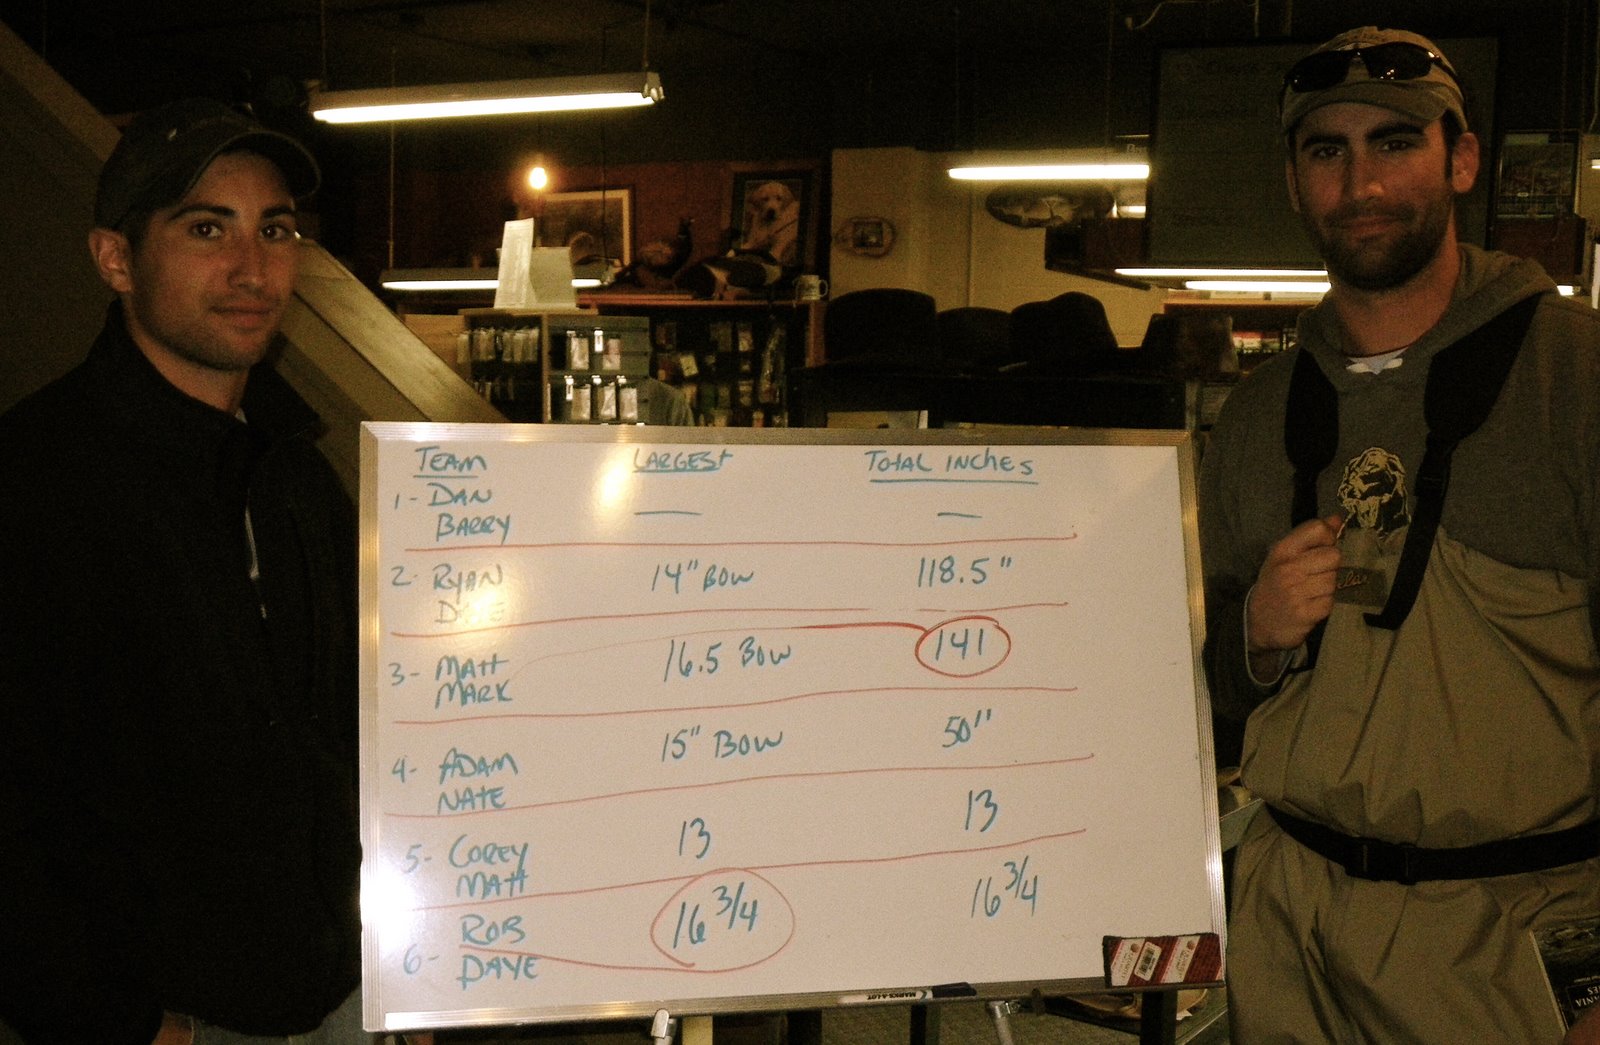 TEAM LARGEST TOTAL INCHES
1- DAN
BARRY — —
2- RYAN 14" BOW 118.5"
3- MATT 16.5 BOW 141
MARK
4- ADAM 15" BOW 50"
NATE
5- COREY 13 13
MATT
ROB 16 3/4 16 3/4
6- DAVE
MARKS-A-LOT